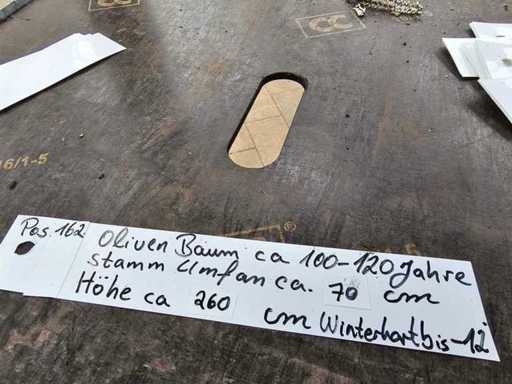 CC
16/1-5
Pos. 162
Oliven Baum ca 100-120 Jahre
stamm Umfan ca. 70 cm
Höhe ca 260 cm Winterhart bis -12